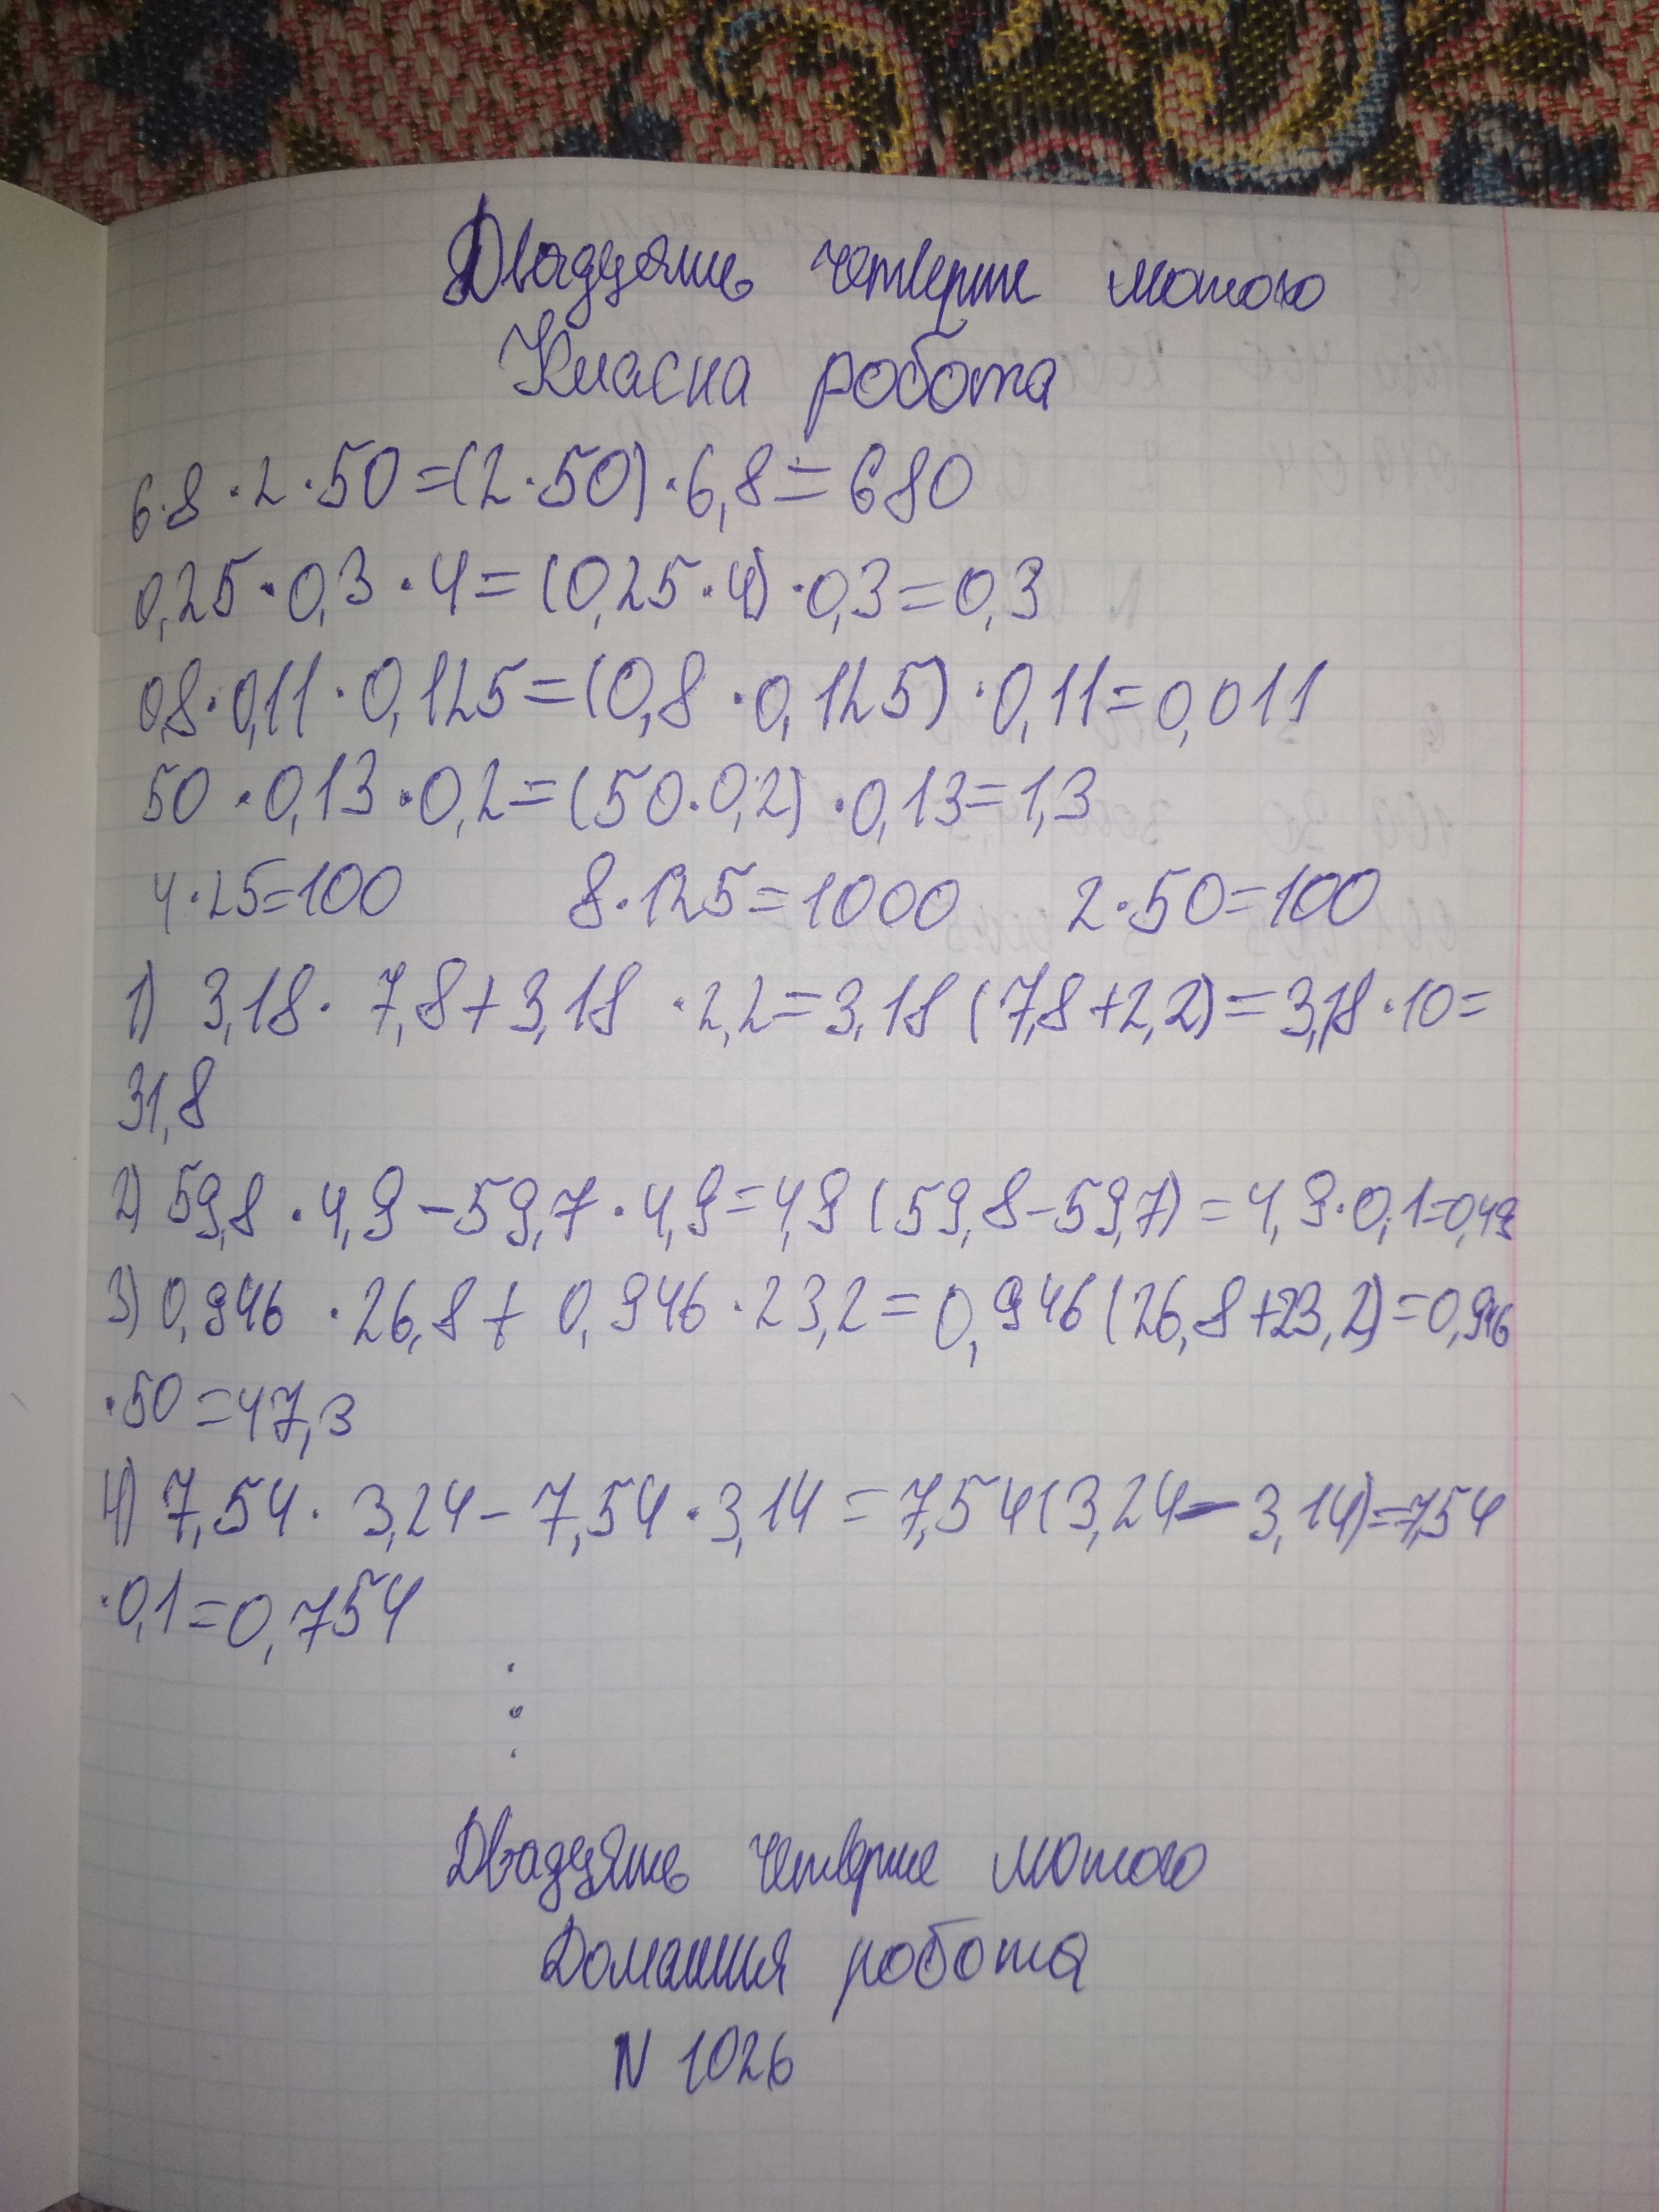 Двадцять четверте лютого
Класна робота
6.8 · 2 · 50 = (2 · 50) · 6,8 = 680
0,25 · 0,3 · 4 = (0,25 · 4) · 0,3 = 0,3
0,8 · 0,11 · 0,125 = (0,8 · 0,125) · 0,11 = 0,011
50 · 0,13 · 0,2 = (50 · 0,2) · 0,13 = 1,3
4 · 25 = 100 8 · 125 = 1000 2 · 50 = 100
1) 3,18 · 7,8 + 3,18 · 2,2 = 3,18 (7,8 + 2,2) = 3,18 · 10 =
31,8
2) 59,8 · 4,9 – 59,7 · 4,9 = 4,9 (59,8 – 59,7) = 4,9 · 0,1 = 0,49
3) 0,946 · 26,8 + 0,946 · 23,2 = 0,946 (26,8 + 23,2) = 0,946
· 50 = 47,3
4) 7,54 · 3,24 – 7,54 · 3,14 = 7,54 (3,24 – 3,14) = 7,54
· 0,1 = 0,754
Двадцять четверте лютого
Домашня робота
N 1026